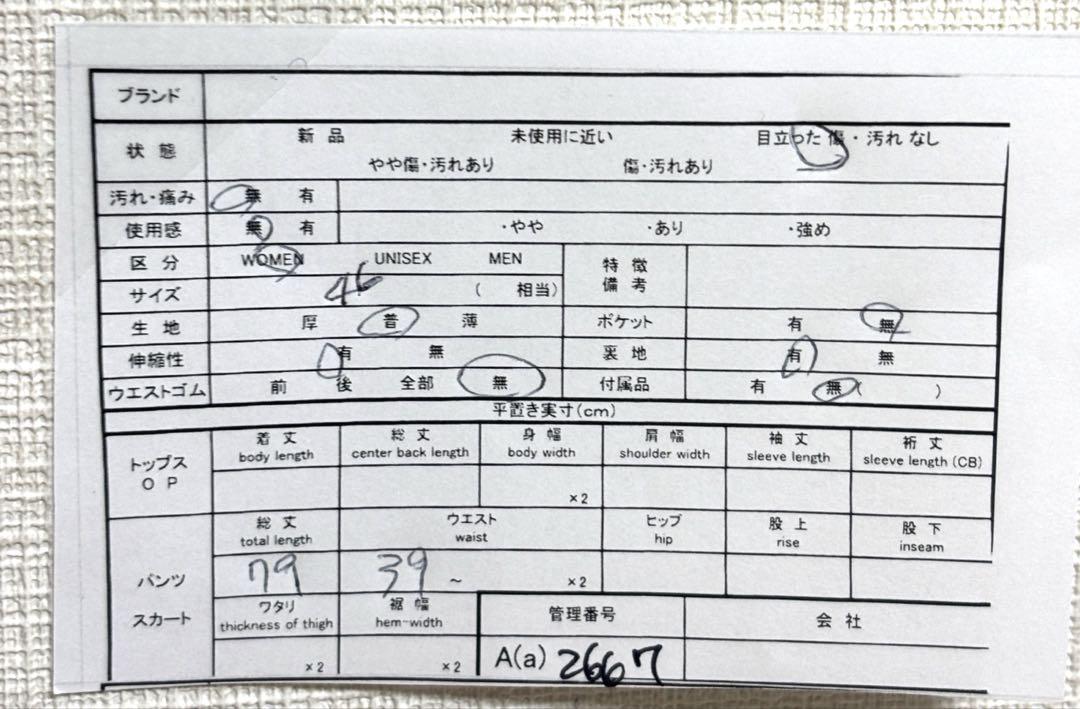 ブランド
状態 新品 未使用に近い 目立った傷・汚れなし
やや傷・汚れあり 傷・汚れあり
汚れ・痛み 無 有
使用感 無 有 ・やや ・あり ・強め
区分 WOMEN UNISEX MEN 特徴備考
サイズ 46 ( 相当)
生地 厚 普 薄 ポケット 有 無
伸縮性 有 無 裏地 有 無
ウエストゴム 前 後 全部 無 付属品 有 無( )
平置き実寸(cm)
トップス OP 着丈 総丈 身幅 肩幅 袖丈 裄丈
body length center back length body width shoulder width sleeve length sleeve length (CB)
×2
パンツ スカート 総丈 ウエスト ヒップ 股上 股下
total length waist hip rise inseam
79 39 ~ ×2
ワタリ 裾幅 管理番号 会社
thickness of thigh hem-width
×2 ×2 A(a) 2667